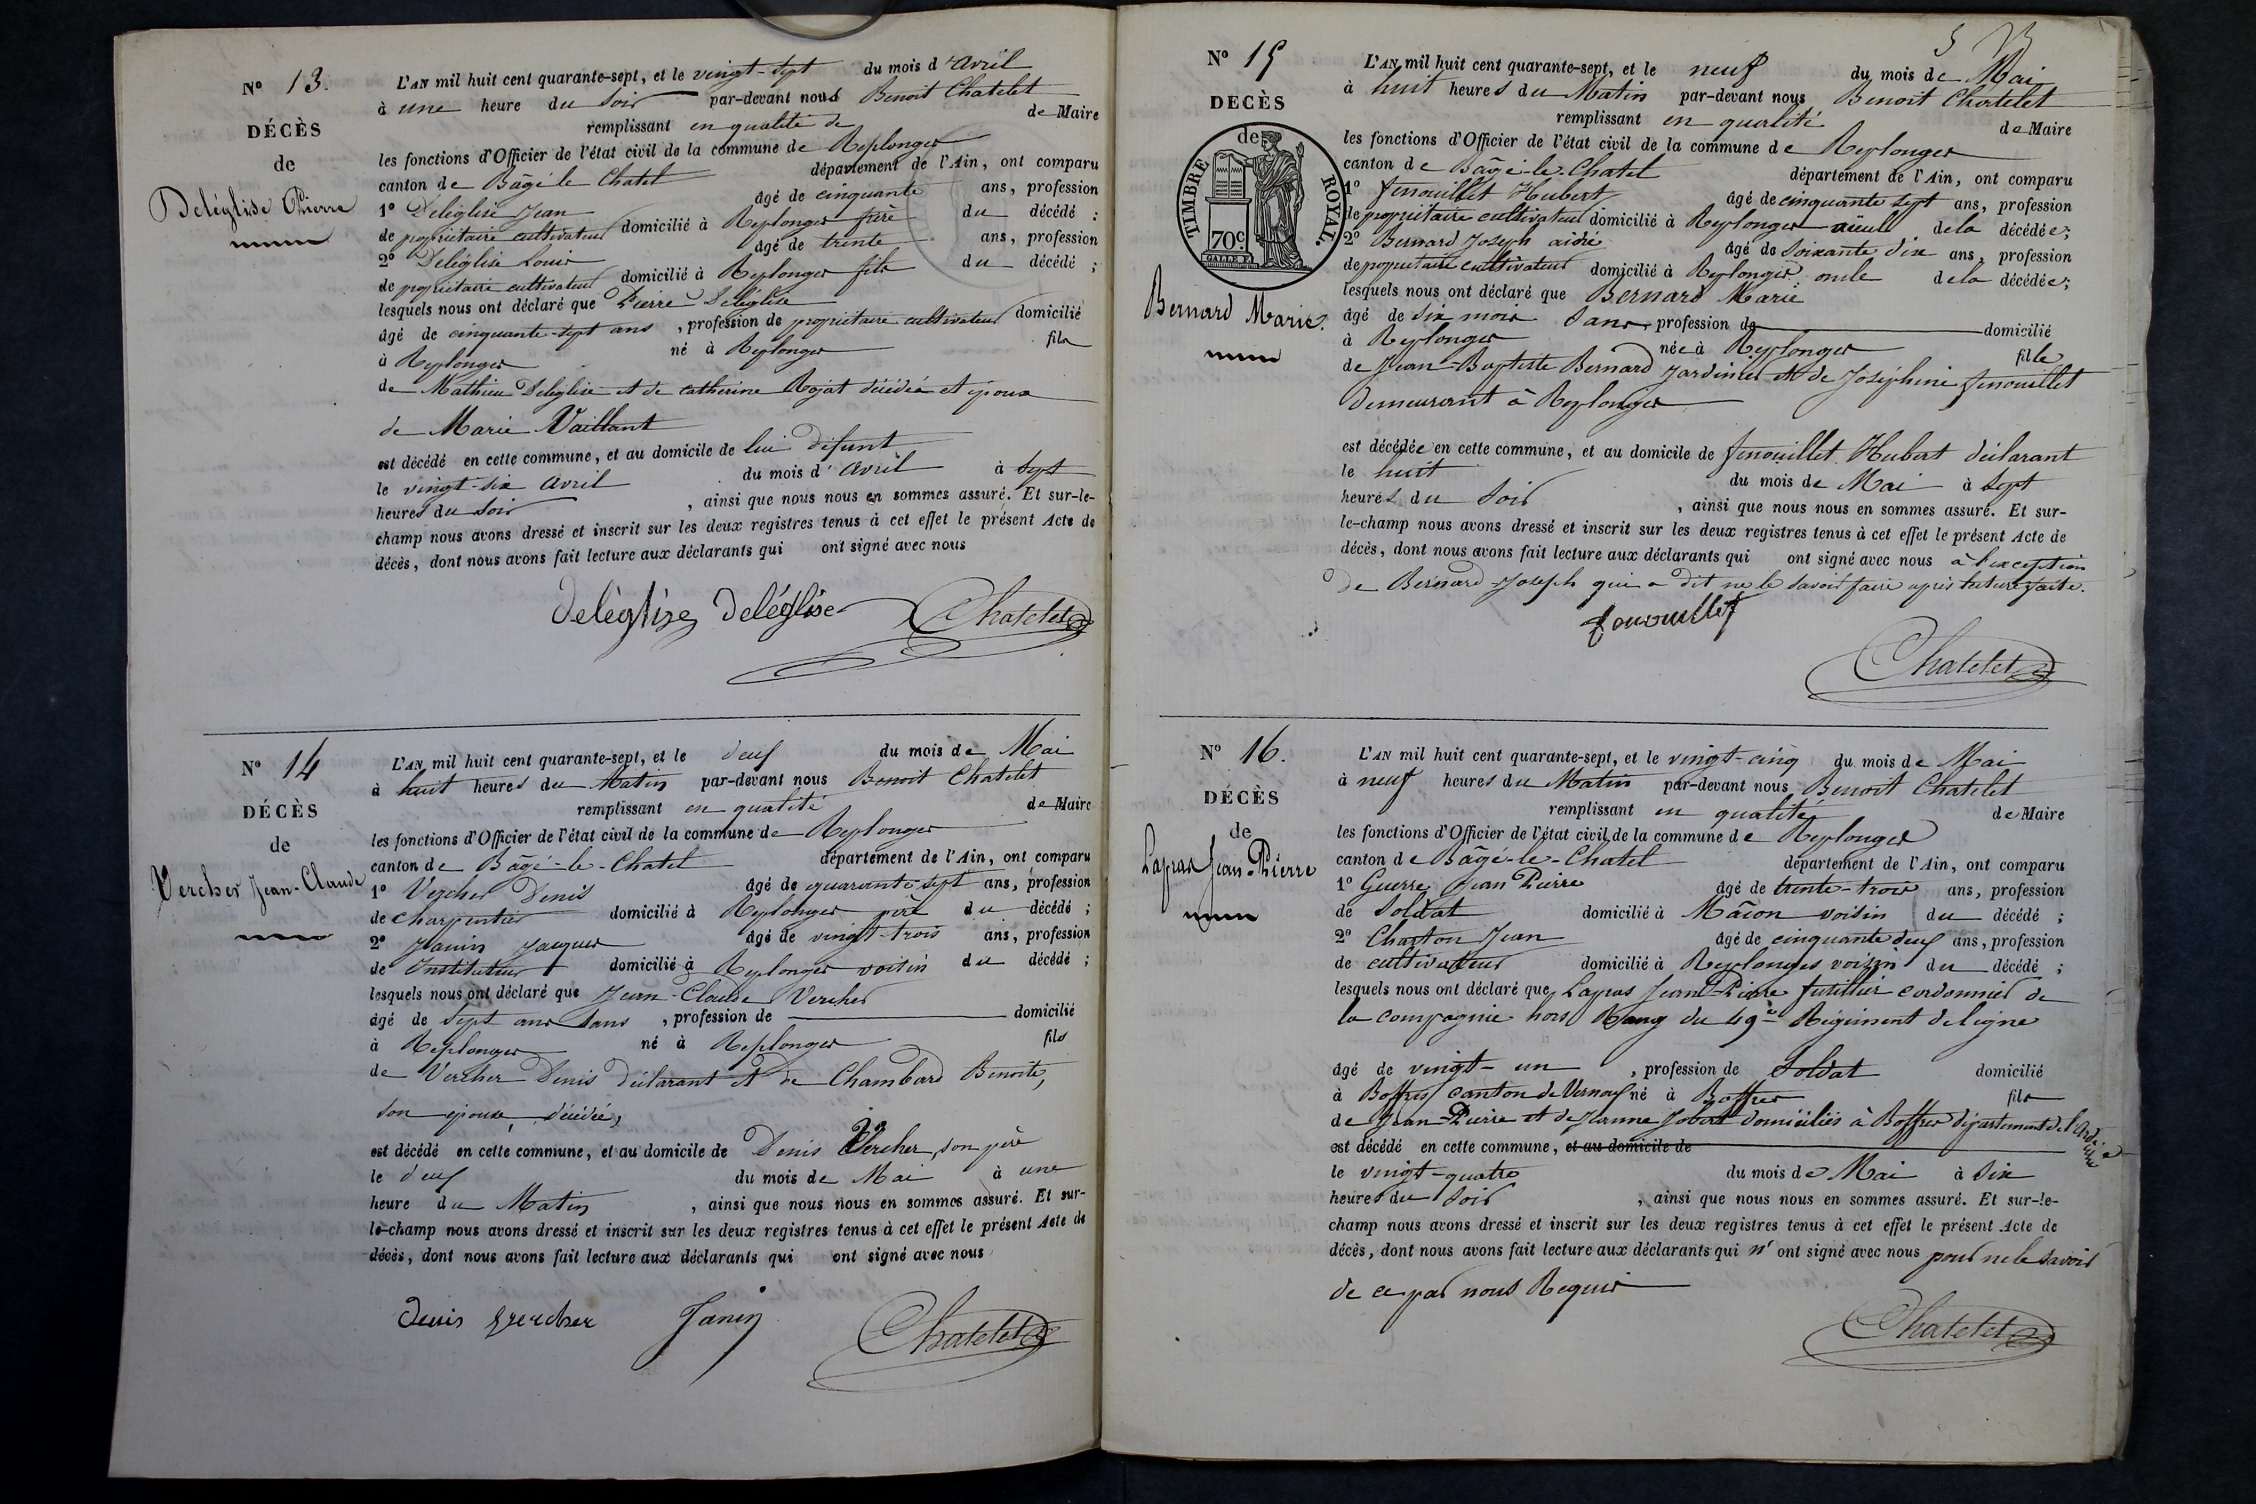 N° 13.
DÉCÈS
de
Deléglise Pierre
L'AN mil huit cent quarante-sept, et le vingt-sept du mois d'avril
à une heure du soir par-devant nous Benoit Chatelet
remplissant en qualité de de Maire
les fonctions d'Officier de l'état civil de la commune de Replonges
canton de Bâgé-le-Chatel département de l'Ain, ont comparu
1° Deléglise Jean âgé de cinquante ans, profession
de propriétaire cultivateur domicilié à Replonges frère du décédé ;
2° Deléglise Louis âgé de trente ans, profession
de propriétaire cultivateur domicilié à Replonges fils du décédé ;
lesquels nous ont déclaré que Pierre Deléglise
âgé de cinquante-sept ans, profession de propriétaire cultivateur domicilié
à Replonges né à Replonges fils
de Mathieu Deléglise et de catherine Rojat décédés et époux
de Marie Vaillant
est décédé en cette commune, et au domicile de lui défunt
le vingt-six avril du mois d'avril à sept
heures du soir, ainsi que nous nous en sommes assuré. Et sur-le-
champ nous avons dressé et inscrit sur les deux registres tenus à cet effet le présent Acte de
décès, dont nous avons fait lecture aux déclarants qui ont signé avec nous
deléglise deléglise Chatelet
N° 14
DÉCÈS
de
Vercher Jean-Claude
L'AN mil huit cent quarante-sept, et le deux du mois de Mai
à huit heures du Matin par-devant nous Benoit Chatelet
remplissant en qualité de Maire
les fonctions d'Officier de l'état civil de la commune de Replonges
canton de Bâgé-le-Chatel département de l'Ain, ont comparu
1° Vercher Denis âgé de quarante-sept ans, profession
de charpentier domicilié à Replonges père du décédé ;
2° Janin Jacques âgé de vingt-trois ans, profession
de Instituteur domicilié à Replonges voisin du décédé ;
lesquels nous ont déclaré que Jean-Claude Vercher
âgé de sept ans sans, profession de domicilié
à Replonges né à Replonges fils
de Vercher Denis déclarant et de Chambard Benoite,
son épouse, décédée,
est décédé en cette commune, et au domicile de Denis Vercher, son père
le deux du mois de Mai à une
heure du Matin, ainsi que nous nous en sommes assuré. Et sur-
le-champ nous avons dressé et inscrit sur les deux registres tenus à cet effet le présent Acte de
décès, dont nous avons fait lecture aux déclarants qui ont signé avec nous
Denis vercher Janin Chatelet
5
N° 15
DÉCÈS
de
TIMBRE ROYAL.
70c.
Bernard Marie.
L'AN mil huit cent quarante-sept, et le neuf du mois de Mai
à huit heures du Matin par-devant nous Benoit Chatelet
remplissant en qualité de Maire
les fonctions d'Officier de l'état civil de la commune de Replonges
canton de Bâgé-le-Chatel département de l'Ain, ont comparu
1° fenouillet Hubert âgé de cinquante sept ans, profession
de propriétaire cultivateur domicilié à Replonges aïeul de la décédée;
2° Bernard Joseph âgé de soixante dix ans, profession
de propriétaire cultivateur domicilié à Replonges oncle de la décédée;
lesquels nous ont déclaré que Bernard Marie
âgé de six mois sans, profession de domicilié
à Replonges née à Replonges fille
de Jean-Baptiste Bernard jardinier et de Joséphine fenouillet
demeurant à Replonges
est décédée en cette commune, et au domicile de fenouillet Hubert déclarant
le huit du mois de Mai à sept
heures du soir, ainsi que nous nous en sommes assuré. Et sur-
le-champ nous avons dressé et inscrit sur les deux registres tenus à cet effet le présent Acte de
décès, dont nous avons fait lecture aux déclarants qui ont signé avec nous à l'exception
de Bernard Joseph qui a dit ne le savoir faire après lecture faite.
fenouillet
Chatelet
N° 16.
DÉCÈS
de
Lapras Jean-Pierre
L'AN mil huit cent quarante-sept, et le vingt-cinq du mois de Mai
à neuf heures du Matin par-devant nous Benoit Chatelet
remplissant en qualité de Maire
les fonctions d'Officier de l'état civil de la commune de Replonges
canton de Bâgé-le-Chatel département de l'Ain, ont comparu
1° Guerre Jean Pierre âgé de trente-trois ans, profession
de Soldat domicilié à Mâcon voisin du décédé ;
2° Charton Jean âgé de cinquante deux ans, profession
de cultivateur domicilié à Replonges voisin du décédé ;
lesquels nous ont déclaré que Lapras Jean-Pierre fusillier cordonnier de
la compagnie hors Rang du 49e Régiment de ligne
âgé de vingt-un, profession de Soldat domicilié
à Boffres canton de Vernoux né à Boffres fils
de Jean-Pierre et de Jeanne Jobert domiciliés à Boffres département de l'Ardèche
est décédé en cette commune, et au domicile de
le vingt-quatre du mois de Mai à six
heures du soir, ainsi que nous nous en sommes assuré. Et sur-le-
champ nous avons dressé et inscrit sur les deux registres tenus à cet effet le présent Acte de
décès, dont nous avons fait lecture aux déclarants qui n' ont signé avec nous pour ne le savoir
de ce par nous Requis
Chatelet